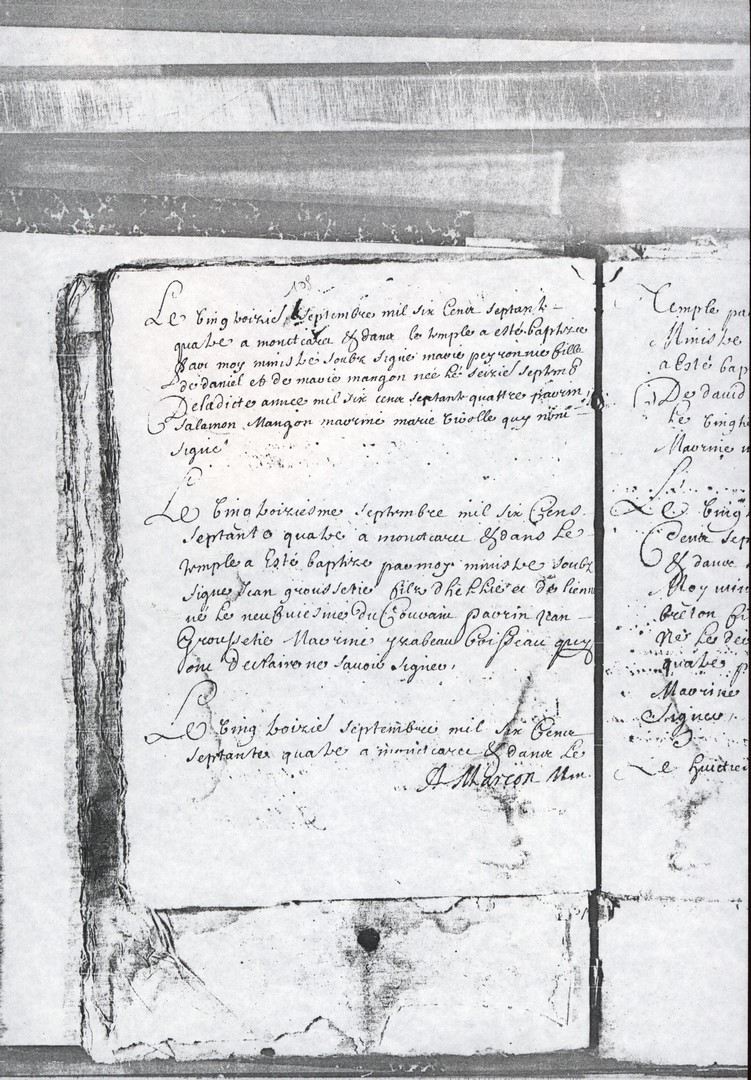 138
Le vingtroizies septembre mil six cens septante
quatre a montcaret & dans le temple a esté baptize
par moy ministre soubz signé marie peyronnie fille
de daniel et de marie mangon née le seizie septemb
De ladicte annee mil six cens septant quattre parrin
Salamon Mangon marrine marie
signé
Le vingtroiziesme septembre mil six Cens
septante quatre a montcaret & dans Le
temple a Esté baptize par moy ministre soubz
signe Jean groussetie filz d'hellie et de
né Le neufviesme du Couvain parrin Jean
Groussetie Marrine yzabeau boisseau quy
ont declaire ne savoir signer,
Le vingtroizies septembre mil six Cens
septante quatre a montcaret & dans Le
A Marcon Min.
Temple pa
Ministre
a Esté bap
De david
Le vingt
Marrine
Le vingt
Cens sep
& dans
Moy min
breton fi
Né Le de
quatre p
Marrine
Signer,
Le huictie